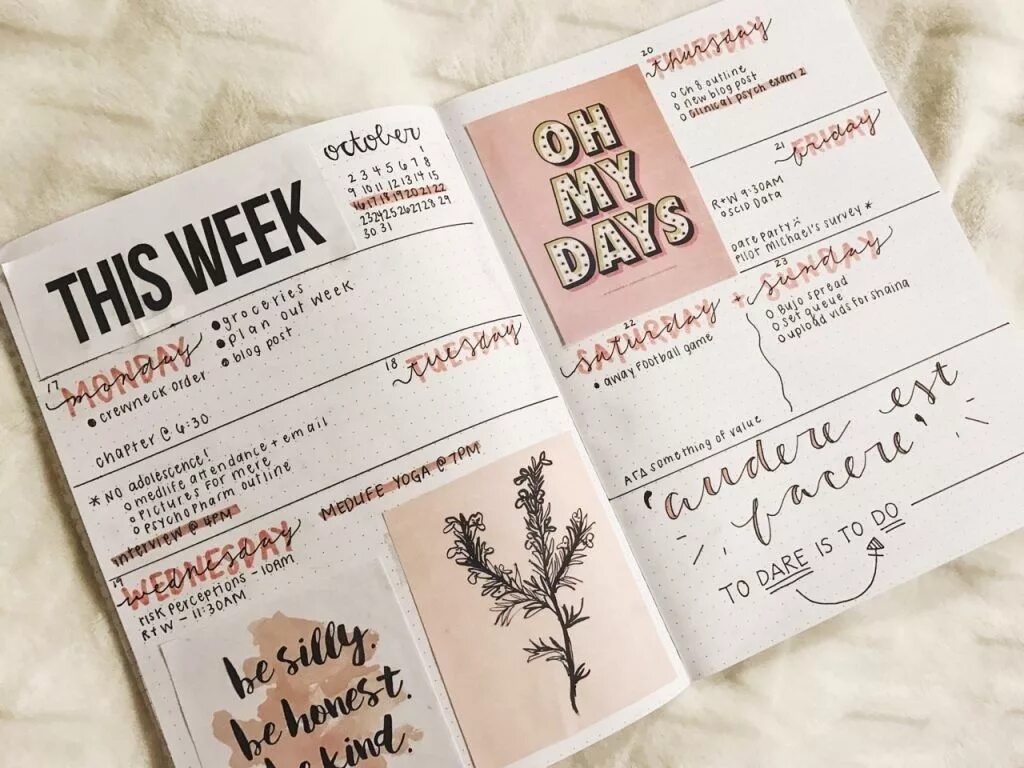 THIS WEEK
october
1
2 3 4 5 6 7 8
9 10 11 12 13 14 15
16 17 18 19 20 21 22
23 24 25 26 27 28 29
30 31
groceries
plan out week
blog post
17
MONDAY
monday
crewneck order
chapter @ 6:30
18
TUESDAY
tuesday
* NO adolescence!
medlife attendance + email
pictures for mere
psychopharm outline
interview @ 4PM
MEDLIFE YOGA @ 7PM
19
WEDNESDAY
wednesday
risk perceptions - 10AM
R+W - 11:30AM
be silly.
be honest.
be kind.
OH
MY
DAYS
20
THURSDAY
thursday
ch 8 outline
new blog post
clinical psych exam 2
21
FRIDAY
friday
R+W 9:30AM
SCID DATA
Dare party
Pilot Michael's survey *
22
SATURDAY
saturday
away football game
+
23
SUNDAY
sunday
Bujo spread
set queue
upload vids for shaina
AΓΔ something of value
'audere est
facere'
TO DARE IS TO DO